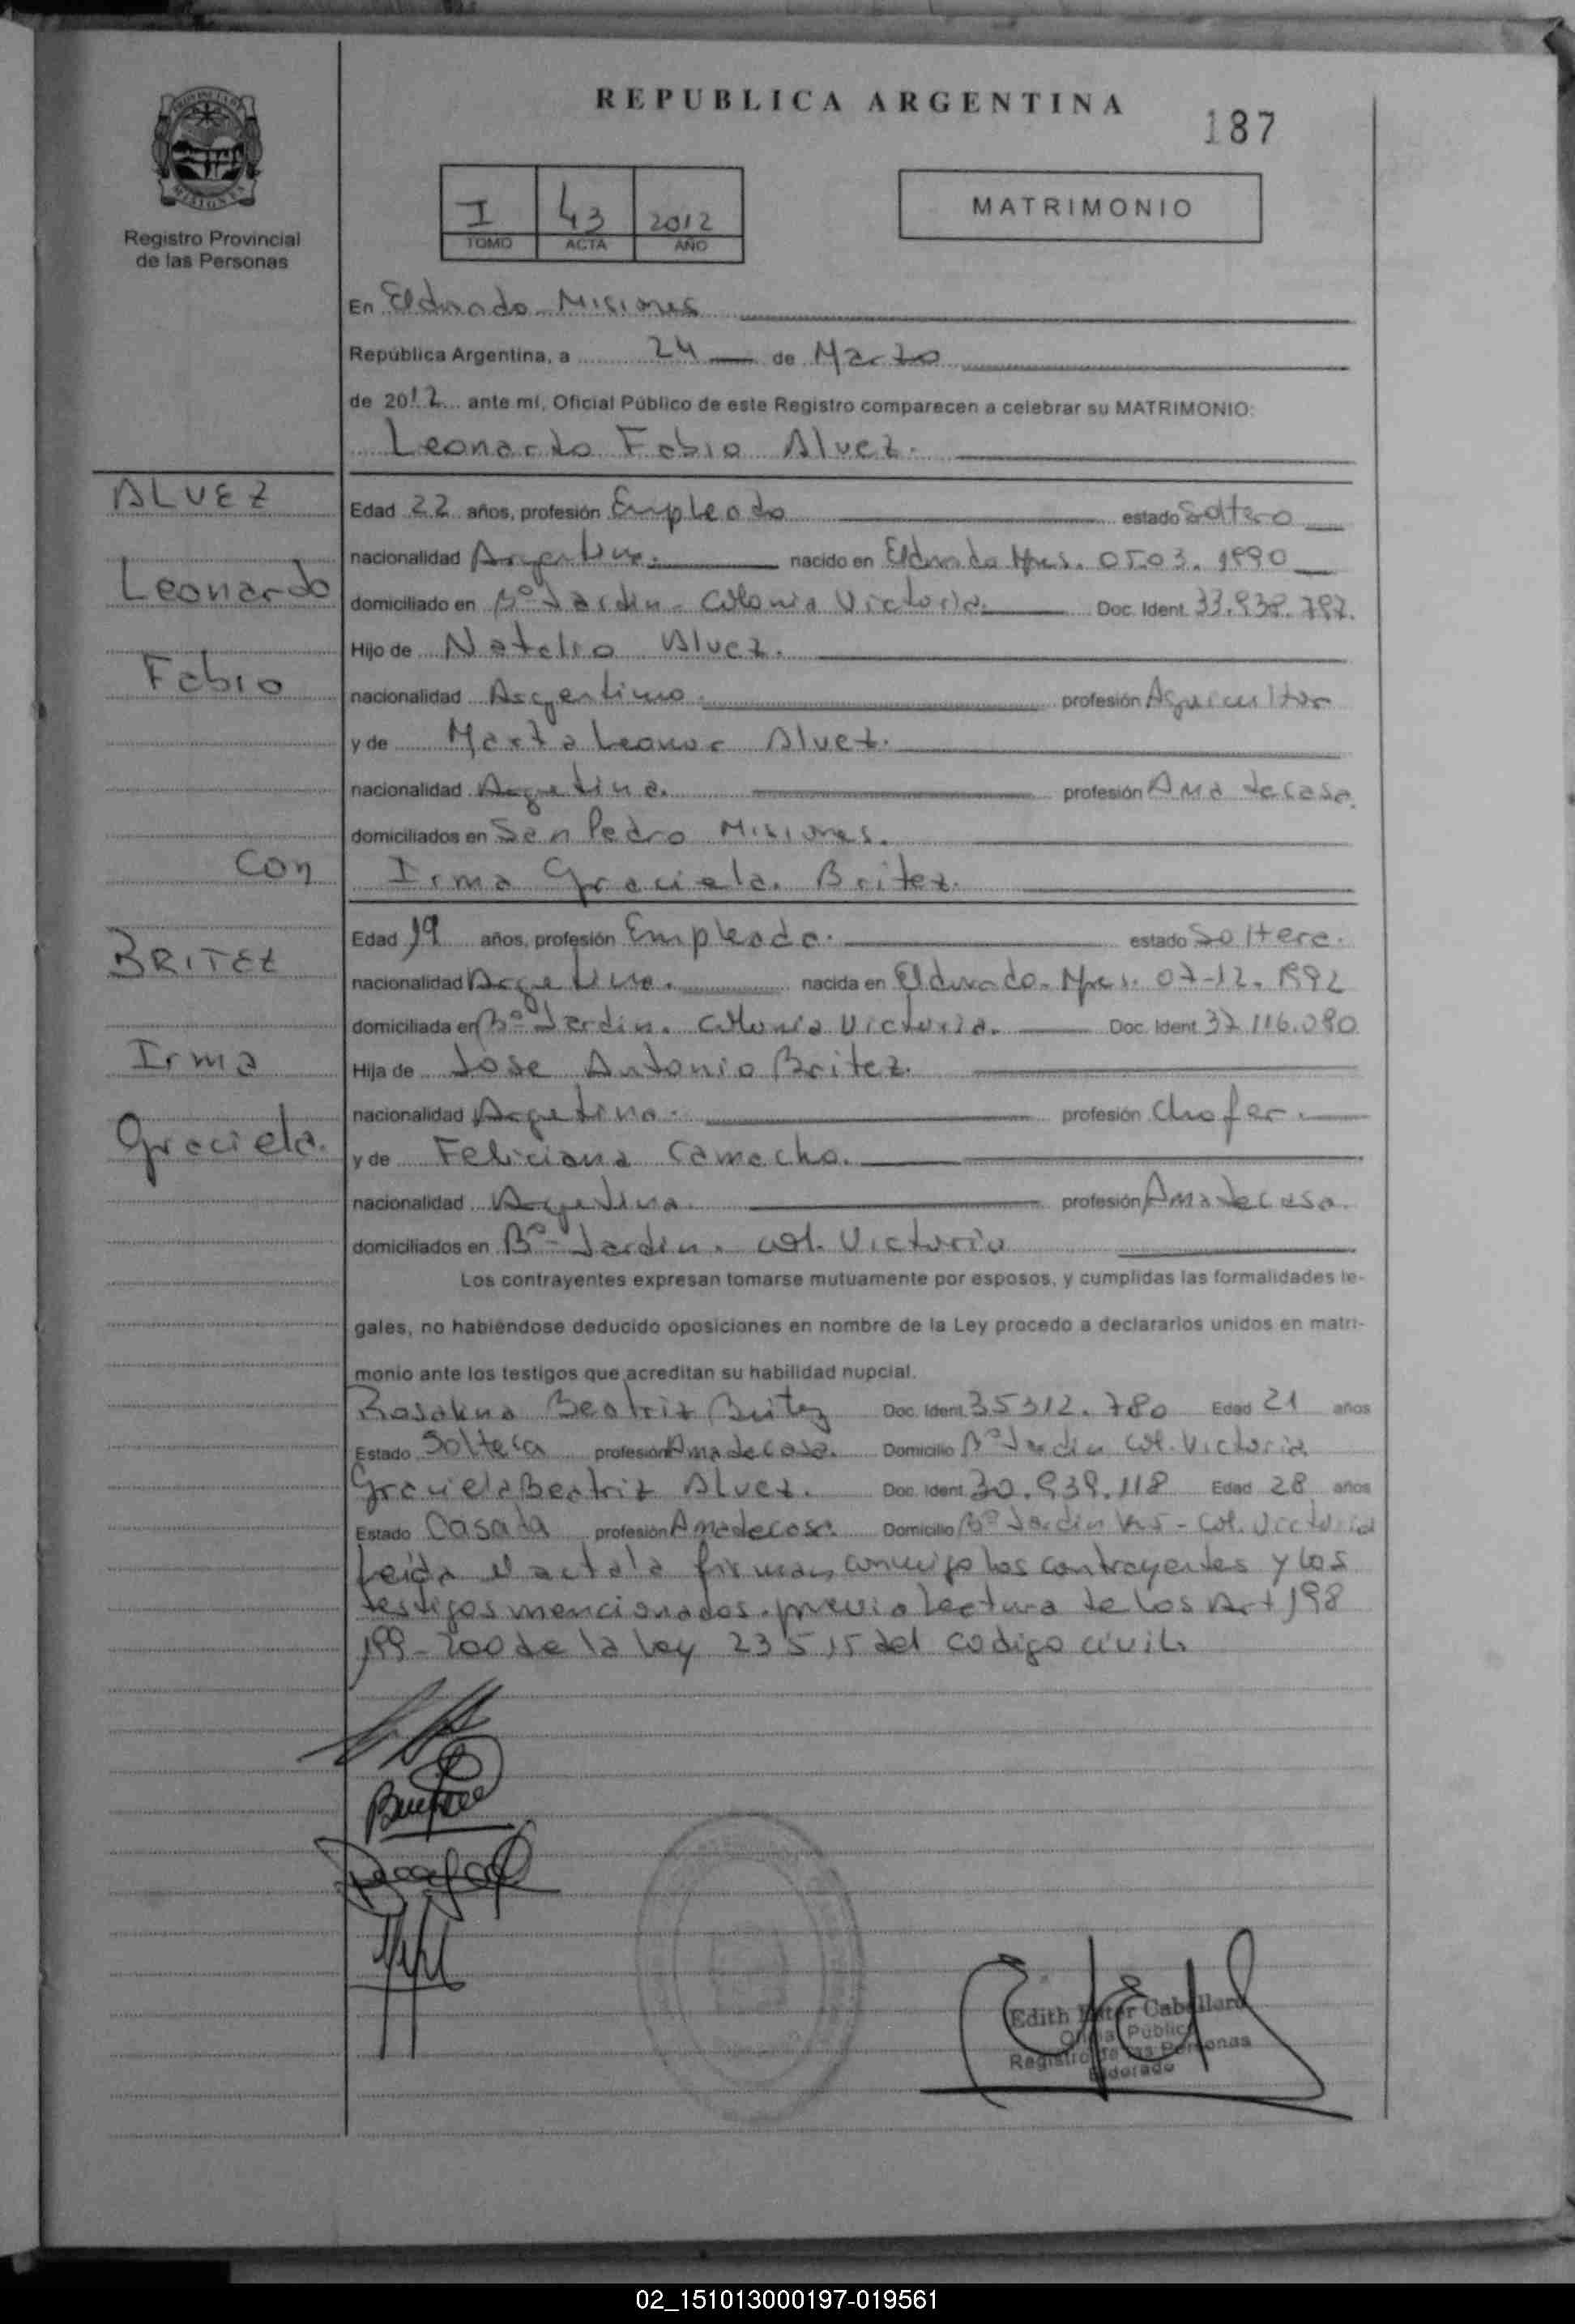 REPUBLICA ARGENTINA
187
PROVINCIA DE
MISIONES
Registro Provincial
de las Personas
I 43 2012
TOMO ACTA AÑO
MATRIMONIO
En Eldorado Misiones
República Argentina, a 24 de Marzo
de 2012 ante mí, Oficial Público de este Registro comparecen a celebrar su MATRIMONIO:
Leonardo Fabio Alvez.
ALVEZ
Leonardo
Fabio
Con
BRITEZ
Irma
Graciela.
Edad 22 años, profesión Empleado estado Soltero
nacionalidad Argentina. nacido en Eldorado Mnes. 05.03.1990
domiciliado en Bº Jardin - Colonia Victoria. Doc. Ident. 33.938.797.
Hijo de Natalio Alvez.
nacionalidad Argentino. profesión Agricultor
y de Marta Leonor Alvez.
nacionalidad Argetina. profesión Ama de casa.
domiciliados en San Pedro Misiones.
Irma Graciela. Britez.
Edad 19 años, profesión Empleada. estado Soltera.
nacionalidad Argetina. nacida en Eldorado. Mnes. 07-12.1992
domiciliada en Bº Jardin. Colonia Victoria. Doc. Ident. 37.116.080
Hija de Jose Antonio Britez.
nacionalidad Argetino. profesión Chofer.
y de Feliciana Camacho.
nacionalidad Argetina. profesión Ama de casa.
domiciliados en Bº Jardin. Col. Victoria
Los contrayentes expresan tomarse mutuamente por esposos, y cumplidas las formalidades le-
gales, no habiéndose deducido oposiciones en nombre de la Ley procedo a declararlos unidos en matri-
monio ante los testigos que acreditan su habilidad nupcial.
Rosalina Beatriz Britez Doc. Ident. 35312.780 Edad 21 años
Estado Soltera profesión Ama de casa. Domicilio Bº Jardin Col. Victoria
Graciela Beatriz Alvez. Doc. Ident. 30.939.118 Edad 28 años
Estado Casada profesión Ama de casa. Domicilio Bº Jardin - Col. Victoria
Leida el acta la firman conmigo los contrayentes y los
testigos mencionados. previa lectura de los Art 198
199-200 de la ley 23515 del codigo civil.
Edith Ester Caballero
Oficial Público
Registro de las Personas
Eldorado
02_151013000197-019561